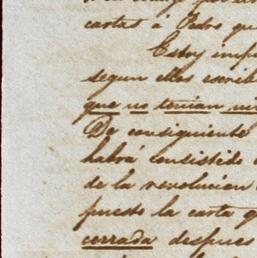 cartas á Pedro qu
Estoy imp
segun ellas escrib
que no tenian
De consiguiente
habrá consistido
de la revolucion
puesto la carta q
cerrada despues